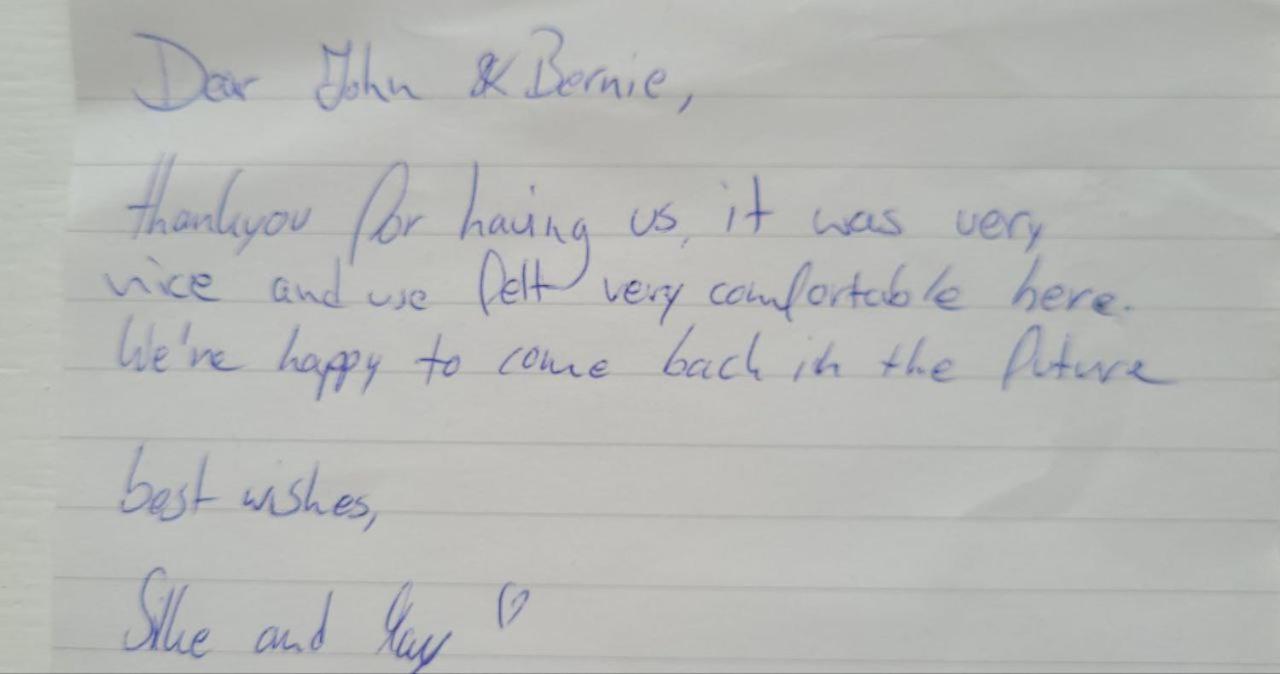 Dear John & Bernie,
thankyou for having us, it was very
nice and we felt very comfortable here.
We're happy to come back in the future
best wishes,
Silke and